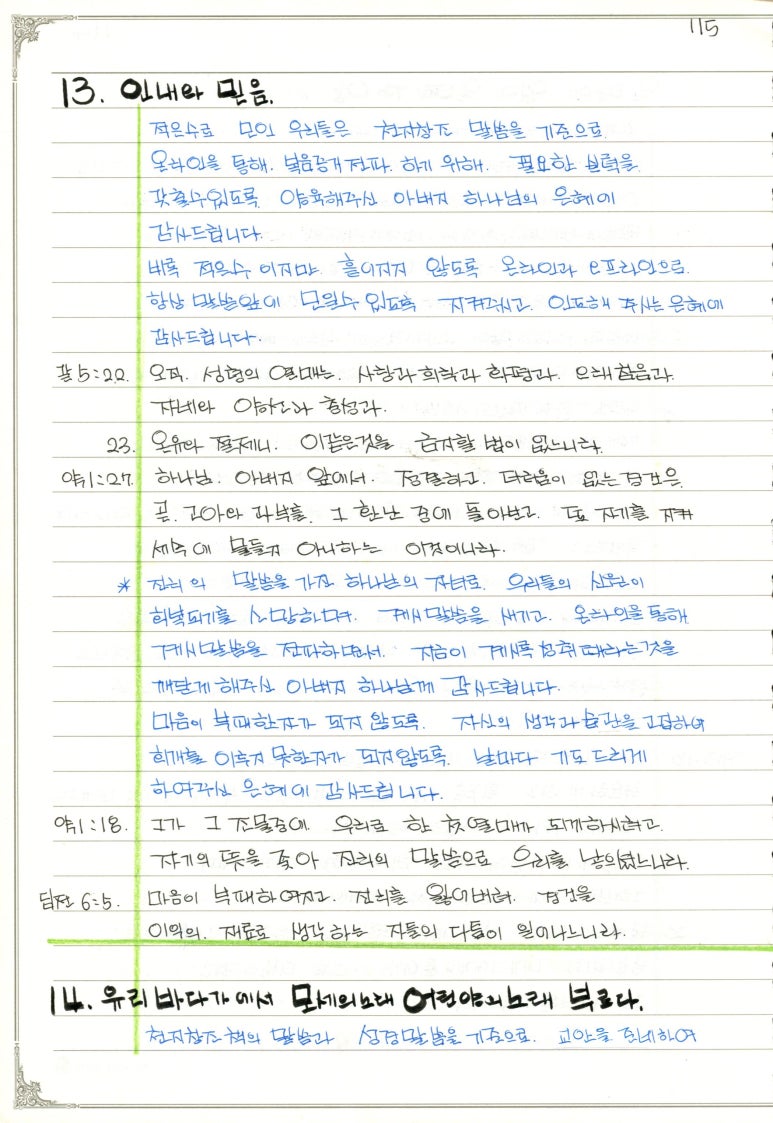 115
13. 인내와 믿음.
적은수로 모인 우리들은 천지창조 말씀을 기준으로
온라인을 통해. 복음공개전파. 하기 위해. 필요한 실력을
갖출수있도록 양육해주신 아버지 하나님의 은혜에
감사드립니다.
비록 적은수 이지만. 흩어지지 않도록 온라인과 e프라인으로.
항상 말씀앞에 모일수 있도록 지켜주시고. 인도해 주시는 은혜에
감사드립니다.
갈5:22. 오직. 성령의 열매는. 사랑과 희락과 화평과. 오래참음과.
자비와 양선과 충성과.
23. 온유와 절제니. 이같은것을 금지할 법이 없느니라.
야1:27. 하나님. 아버지 앞에서. 정결하고. 더러움이 없는 경건은
곧. 고아와 과부를. 그 환난 중에 돌아보고. 또 자기를 지켜
세속에 물들지 아니하는 이것이니라.
* 진리의 말씀을 가진 하나님의 자녀로. 우리들의 신원이
회복되기를 소망하며. 계시말씀을 새기고. 온라인을 통해
계시말씀을 전파하면서. 지금이 계시록 성취때라는것을
깨닫게 해주신 아버지 하나님께 감사드립니다.
마음이 부패한자가 되지 않도록. 자신의 생각과 습관을 고집하여
회개를 이루지 못한자가 되지않도록. 날마다 기도 드리게
하여주신 은혜에 감사드립니다.
야1:18. 그가 그 조물중에 우리로 한 첫열매가 되게하시려고.
자기의 뜻을 좇아 진리의 말씀으로 우리를 낳으셨느니라.
딤전 6:5. 마음이 부패하여지고. 진리를 잃어버려. 경건을
이익의. 재료로 생각하는 자들의 다툼이 일어나느니라.
14. 유리바다가에서 모세의노래 어린양의노래 부르다.
천지창조 책의 말씀과 성경말씀을 기준으로. 교안을 준비하여